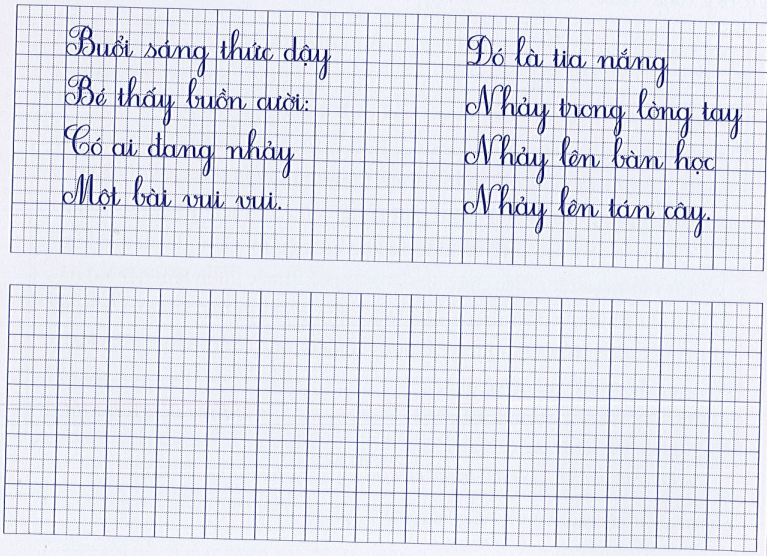 Buổi sáng thức dậy
Bé thấy buồn cười:
Có ai đang nhảy
Một bài vui vui.
Đó là tia nắng
Nhảy trong lòng tay
Nhảy lên bàn học
Nhảy lên tán cây.